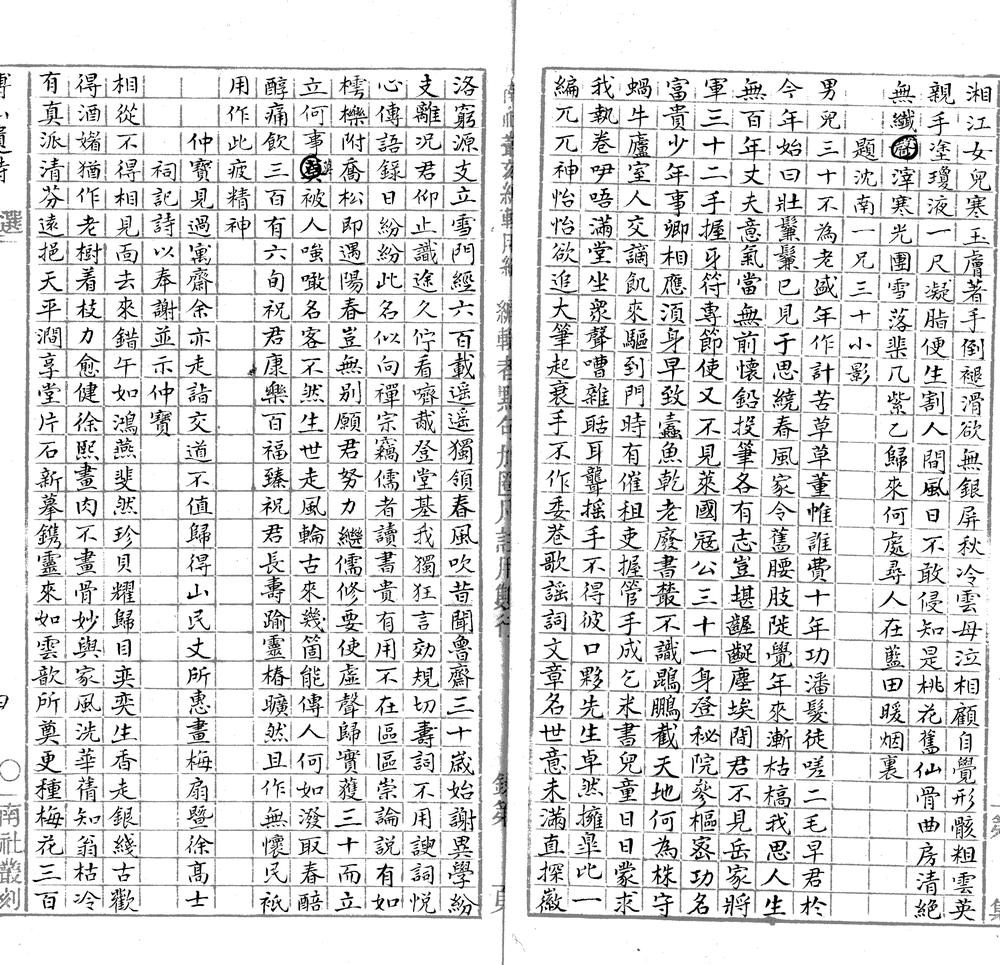 湘江女兒寒玉膚著手倒褪滑欲無銀屏秋冷雲母泣相顧自覺形骸粗雲英
親手塗瓊液一尺凝脂便生割人間風日不敢侵知是桃花舊仙骨曲房清絕
無纖滓寒光團雪落棐几紫乙歸來何處尋人在藍田暖烟裏
題沈南一兄三十小影
男兒三十不為老盛年作計苦草草董惟誰費十年功潘髮徒嗟二毛早君於
今年始曰壯鬑鬑已見于思繞春風家令舊腰肢陡覺年來漸枯槁我思人生
無百年丈夫意氣當無前懷鉛投筆各有志豈堪齷齪塵埃間君不見岳家將
軍三十二手握牙符專節使又不見萊國冠公三十一身登秘院參樞密功名
富貴少年事卿相應須身早致蠹魚乾老廢書叢不識鵾鵬截天地何為株守
蝸牛廬室人交謫飢來驅到門時有催租吏握管手成乞米書兒童日日蒙求
我執卷咿唔滿堂坐衆聲嘈雜聒耳聾搖手不得彼口夥先生卓然擁皋此一
編兀兀神怡怡欲追大筆起衰手不作委巷歌謠詞文章名世意未滿直探徽
洛窮源支立雪門經六百載遥遥獨領春風吹昔聞魯齋三十歲始謝異學紛
支離况君仰止識途久佇看嚌胾登堂基我獨狂言効規切壽詞不用諛詞悅
心傳語錄日紛紛此名似向禪宗竊儒者讀書貴有用不在區區崇論説有如
樗櫟附喬松即遇陽春豈無别願君努力繼儒修要使虛聲歸實獲三十而立
立何事莫被人嗤噉名客不然生世走風輪古來幾箇能傳人何如潑取春醅
醇痛飲三百有六旬祝君康樂百福臻祝君長壽踰靈椿曠然且作無懷民祇
用作此疲精神
仲寶見過寓齋余亦走詣交道不值歸得山民丈所惠畫梅扇暨徐髙士
祠記詩以奉謝並示仲寶
相從不得相見面去來錯午如鴻燕斐然珍貝耀歸目奕奕生香走銀綫古歡
得酒媨猶作老樹着枝力愈健徐熙畫肉不畫骨妙與家風洗華蒨知翁枯冷
有真派清芬遠挹天平澗享堂片石新摹鐫靈來如雲歆所奠更種梅花三百
選
南社叢刻